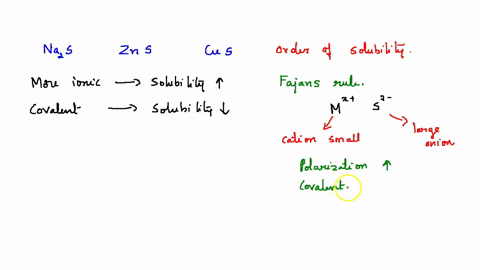 Na₂S ZnS CuS Order of solubility.
More ionic → Solubility ↑
Covalent → Solubility ↓
Fajans rule.
Mˣ⁺ S²⁻
cation small
large anion
Polarization ↑
Covalent.